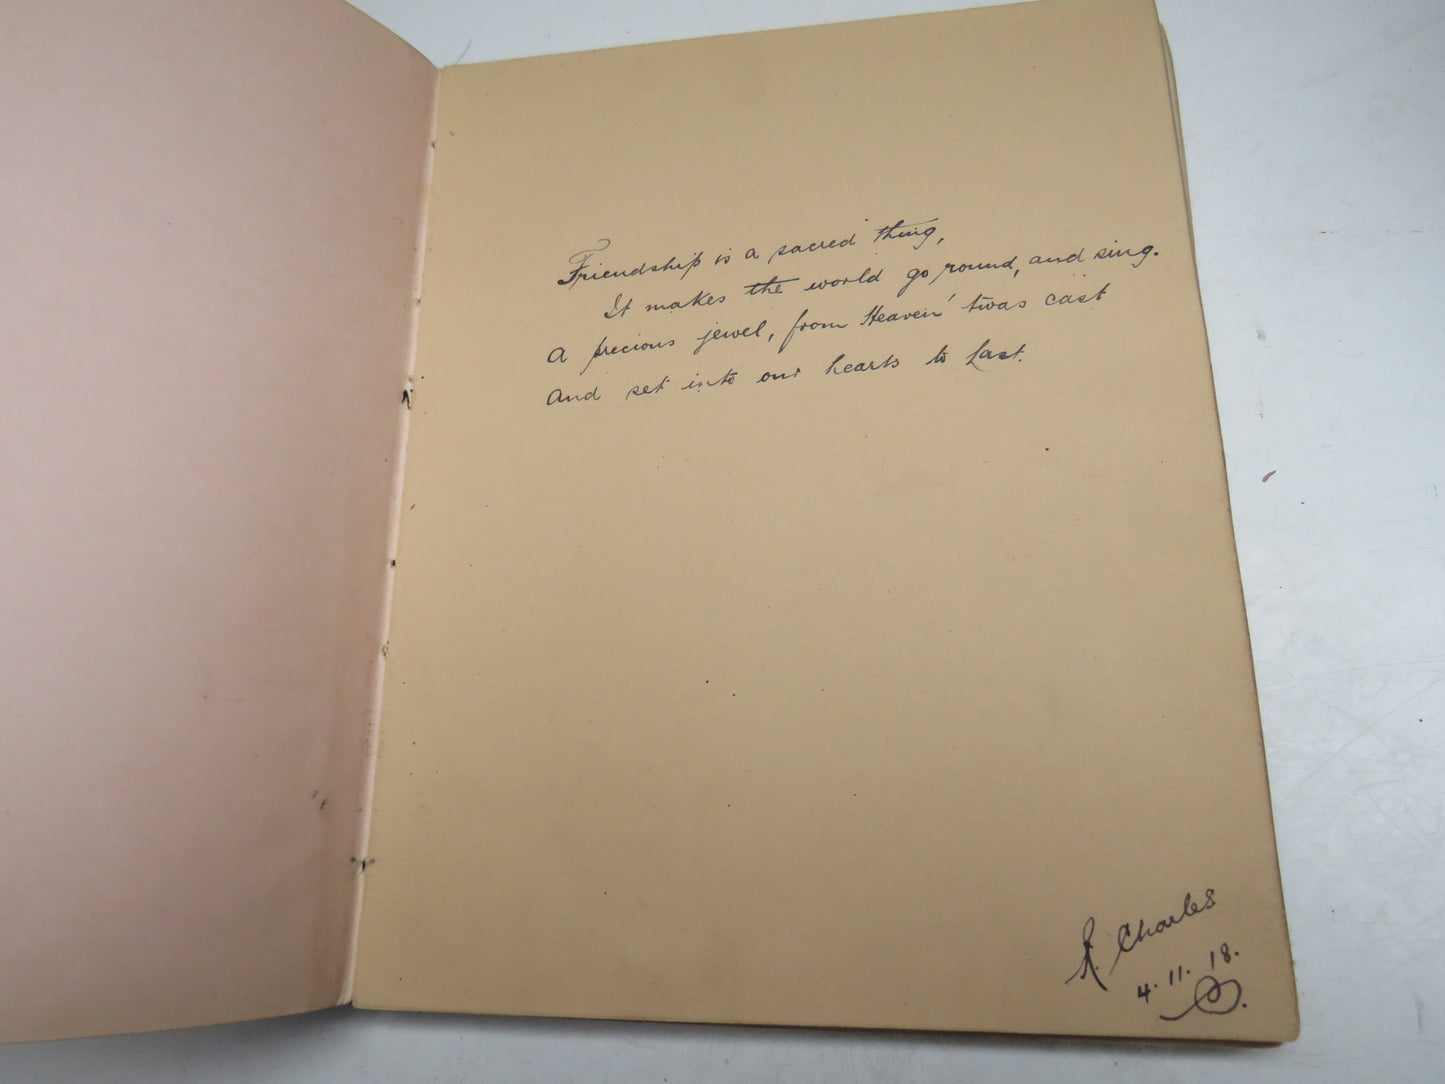 Friendship is a sacred thing,
It makes the world go round, and sing.
A precious jewel, from Heaven' twas cast
And set into our hearts to last.
Charles
4.11.18.